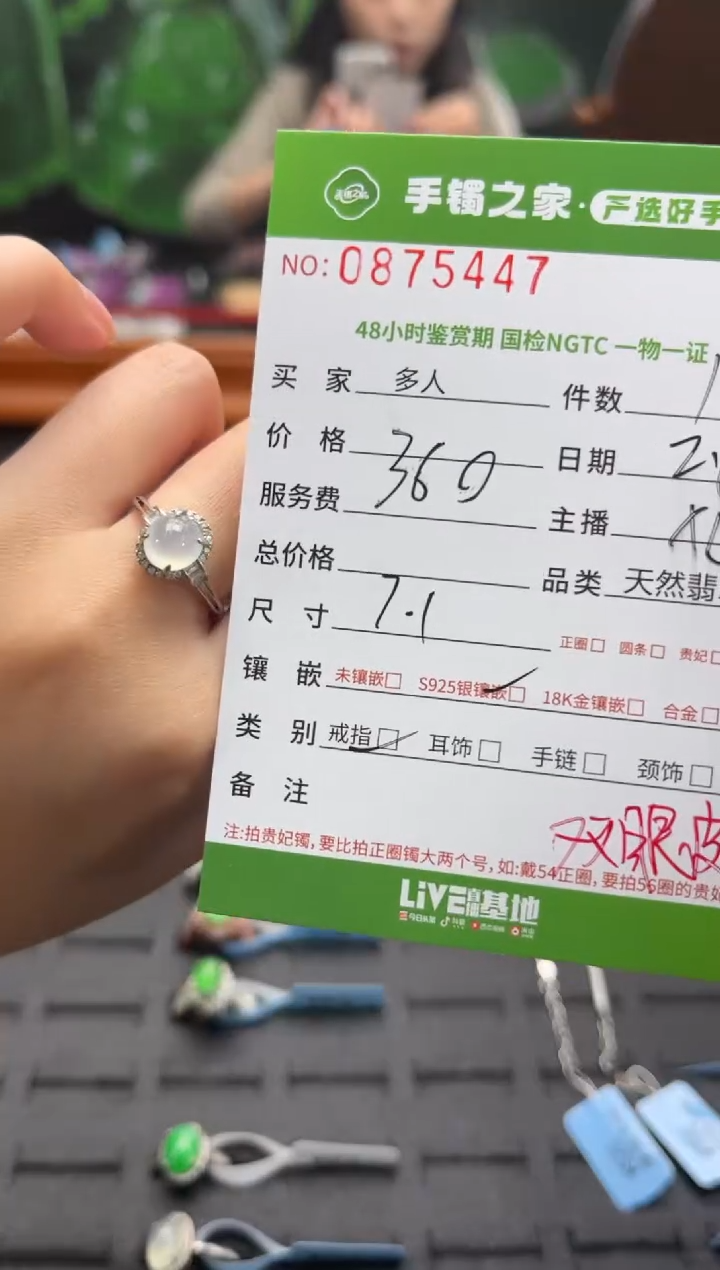 手镯之家·严选好手
NO: 0875447
48小时鉴赏期 国检NGTC 一物一证
买 家 多人 件数 1
价 格 360 日期
服务费 主播
总价格 品类 天然翡
尺 寸 7.1 正圈□ 圆条□ 贵妃□
镶 嵌 未镶嵌□ S925银镶嵌□ 18K金镶嵌□ 合金□
类 别 戒指□ 耳饰□ 手链□ 颈饰□
备 注
双眼皮
注:拍贵妃镯,要比拍正圈镯大两个号,如:戴54正圈,要拍56圈的贵妃
LIVE直播基地